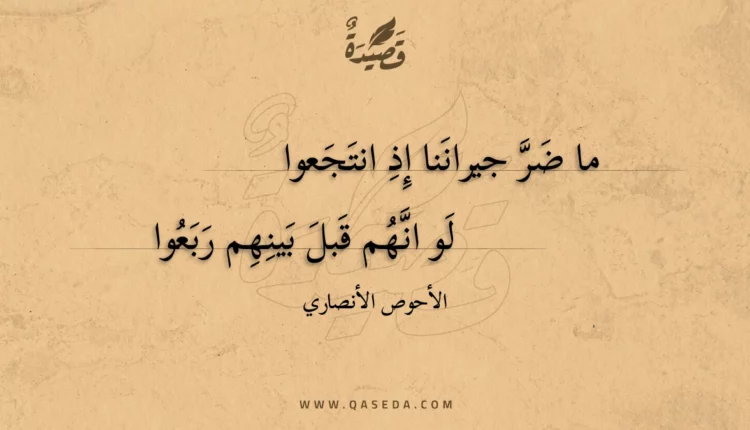 قَصِيْدَةٌ
ما ضَرَّ جيرانَنا إِذِ انتَجَعوا
لَو انَّهُم قَبلَ بَينِهِم رَبَعُوا
الأحوص الأنصاري
WWW.QASEDA.COM